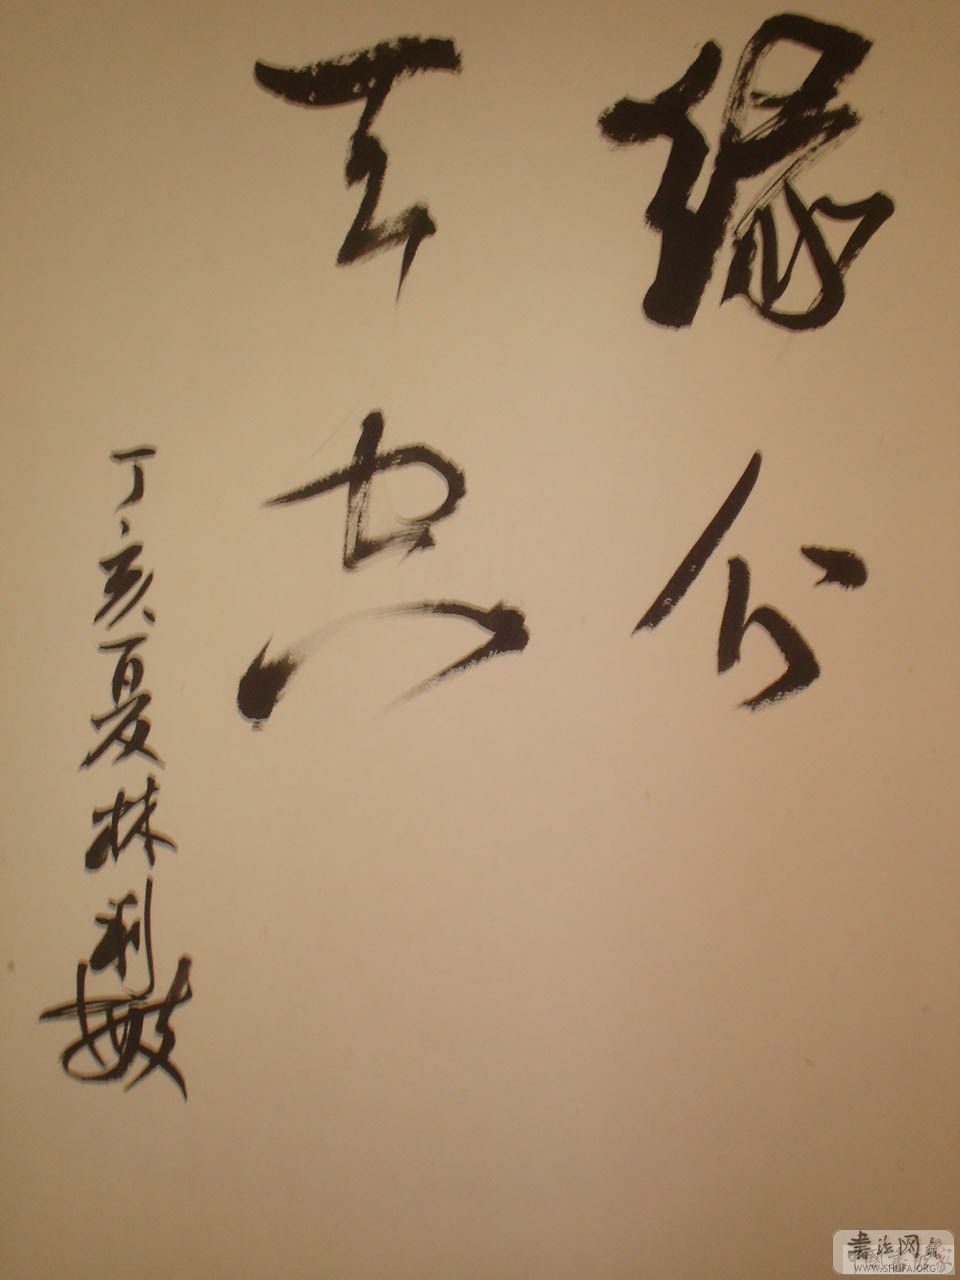 缘分
天定
丁亥夏林利敏
书法网
WWW.SHUFA.ORG